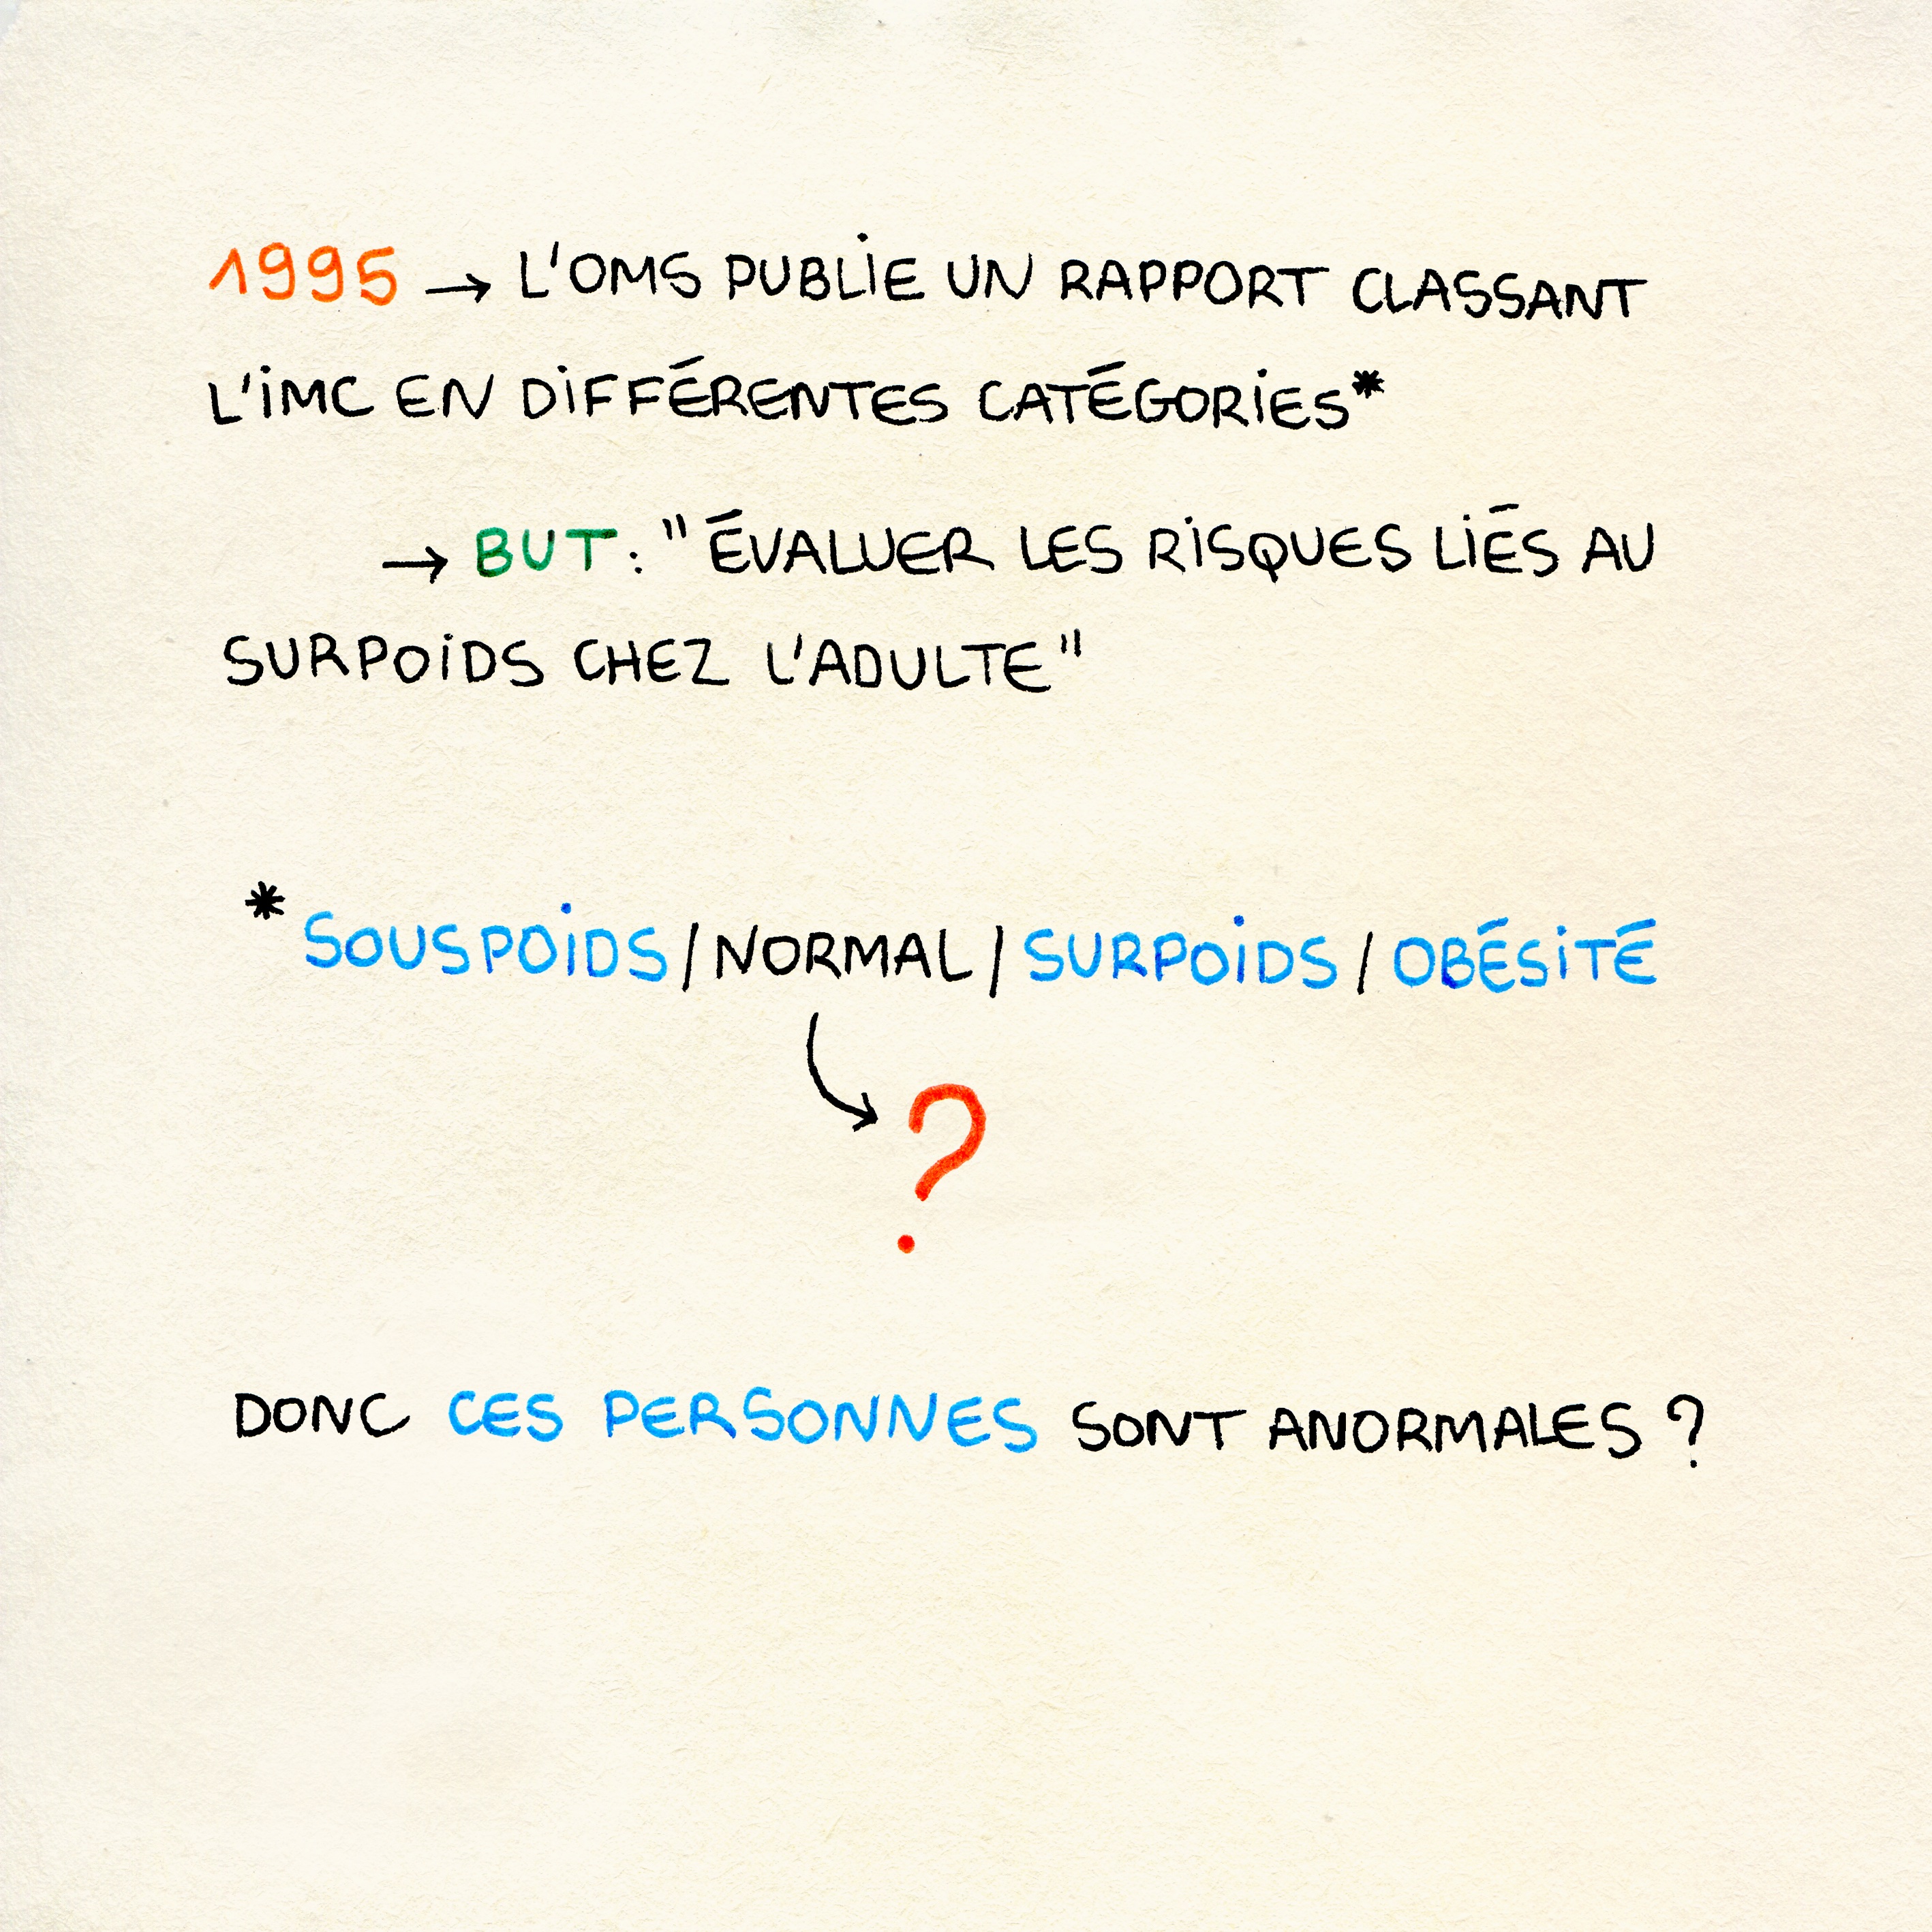 1995 → L'OMS PUBLIE UN RAPPORT CLASSANT
L'IMC EN DIFFÉRENTES CATÉGORIES*
→ BUT : "ÉVALUER LES RISQUES LIÉS AU
SURPOIDS CHEZ L'ADULTE"
* SOUSPOIDS / NORMAL / SURPOIDS / OBÉSITÉ
?
DONC CES PERSONNES SONT ANORMALES ?